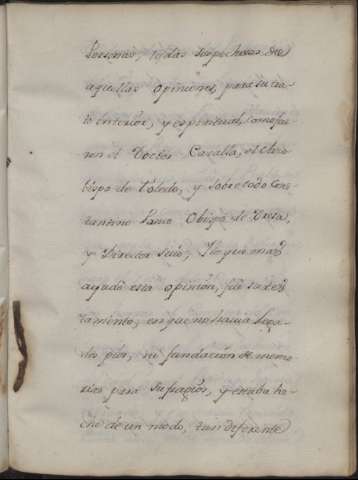 Personas, todas sospechosas de
aquellas opiniones, para su tra
to interior, y espiritual, como fue
ron el Doctor Cazalla, el Arzo
bispo de Toledo, y sobre todo Cons
tantino Ponce Obispo de Drosa,
y Director suio; Y lo que mas
ayudó esta opinion, fue su tes
tamento, en que no havia Lega
do pio, ni fundacion de memo
rias para sufragios, y estaba he
cho de un modo, tan diferente